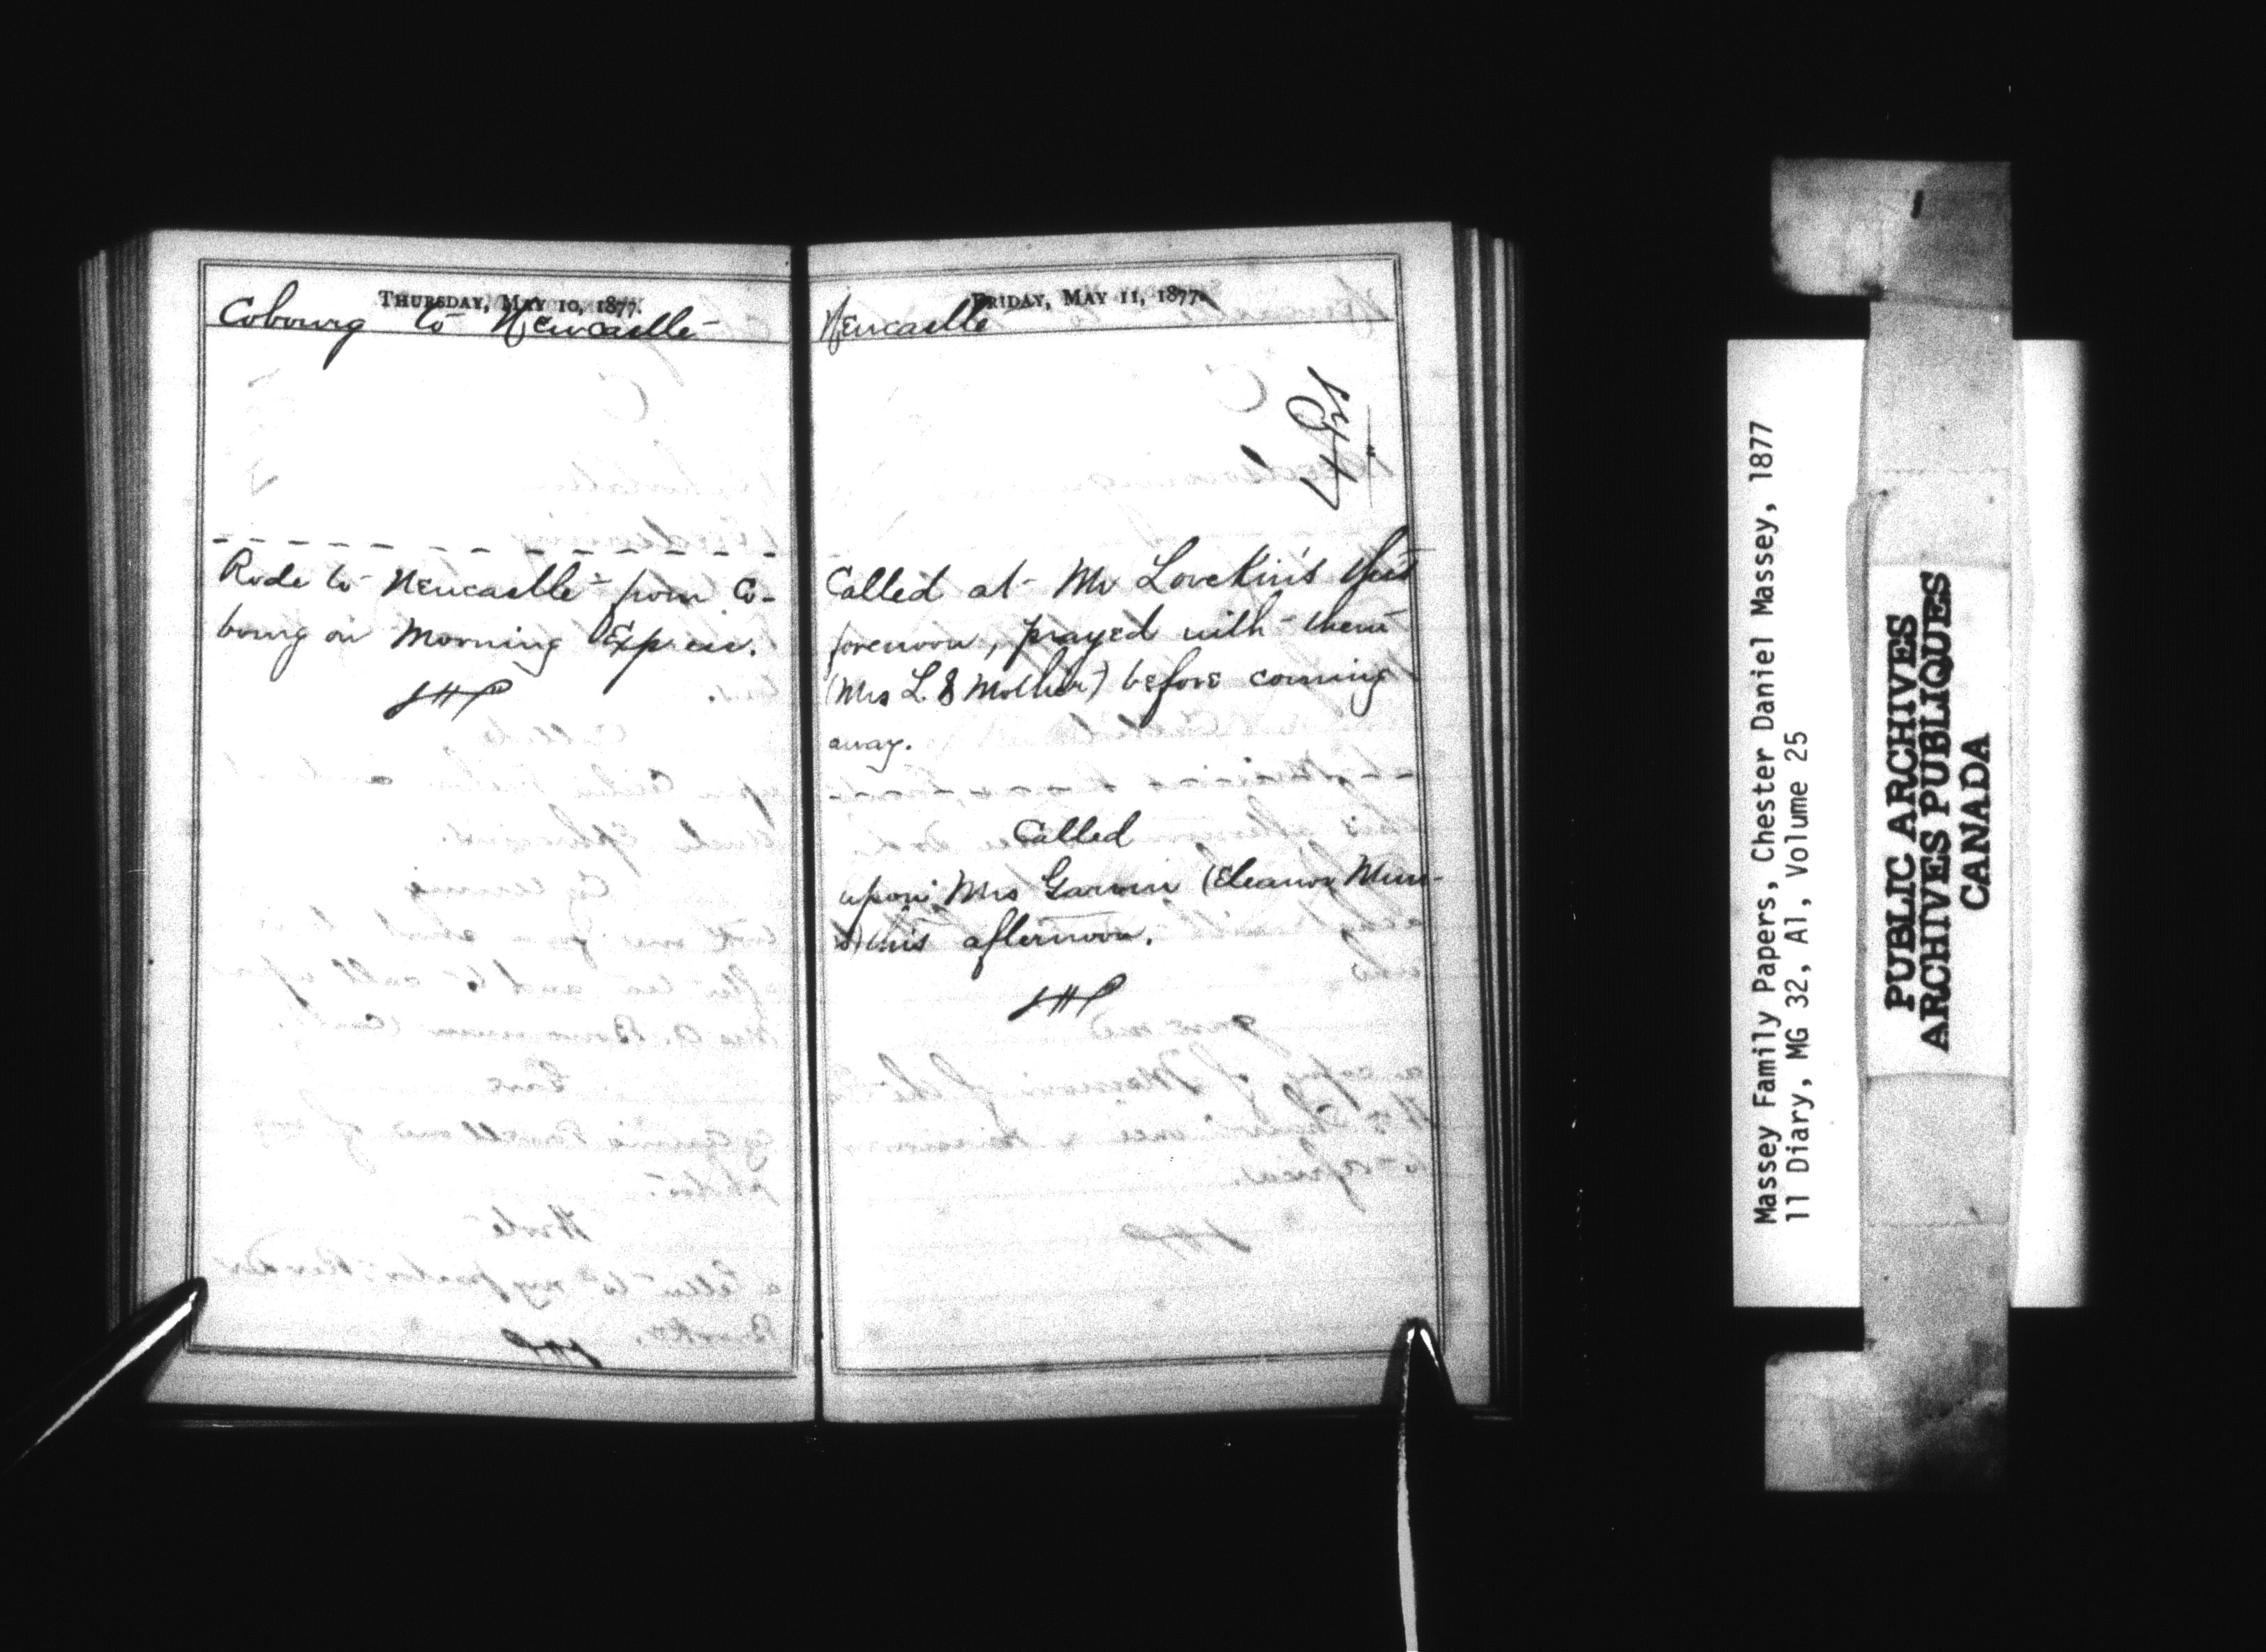 THURSDAY, MAY 10, 1877.
Cobourg to Newcastle
Rode to Newcastle from Co-
bourg on Morning Express.
FRIDAY, MAY 11, 1877.
Newcastle
Called at Mr Lovekin's this
forenoon, prayed with them
(Mrs L. & Mother) before coming
away.
Called
upon Mrs (Eleanor
this afternoon.
Massey Family Papers, Chester Daniel Massey, 1877
11 Diary, MG 32, A1, Volume 25
PUBLIC ARCHIVES
ARCHIVES PUBLIQUES
CANADA